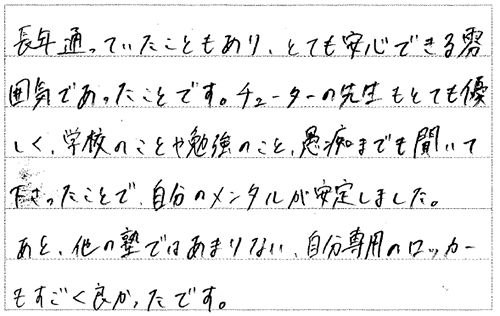 長年通っていたこともあり、とても安心できる雰
囲気であったことです。チューターの先生もとても優
しく、学校のことや勉強のこと、愚痴までも聞いて
下さったことで、自分のメンタルが安定しました。
あと、他の塾ではあまりない、自分専用のロッカー
もすごく良かったです。